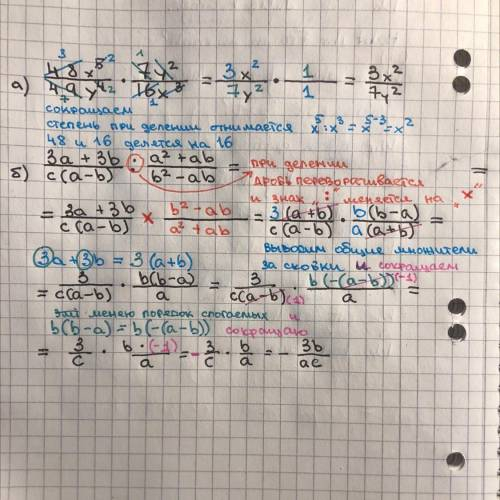 а) 48x⁵/49y⁴ · 7y²/16x³ = 3x²/7y² · 1/1 = 3x²/7y²
сокращаем
степень при делении отнимается x⁵:x³=x⁵⁻³=x²
48 и 16 делятся на 16
б) (3a+3b)/(c(a-b)) : (a²+ab)/(b²-ab) = при делении
дробь переворачивается
и знак ":" меняется на "×"
= (3a+3b)/(c(a-b)) × (b²-ab)/(a²+ab) = 3(a+b)/(c(a-b)) · b(b-a)/(a(a+b)) =
3a+3b = 3(a+b)
выводим общие множители
за скобки и сокращаем
= 3/(c(a-b)) · b(b-a)/a = 3/(c(a-b)(1)) · b(-(a-b))(-1)/a =
меняю порядок слогаемых и
b(b-a) = b(-(a-b)) сокращаю
= 3/c · b·(-1)/a = -3/c · b/a = - 3b/ac